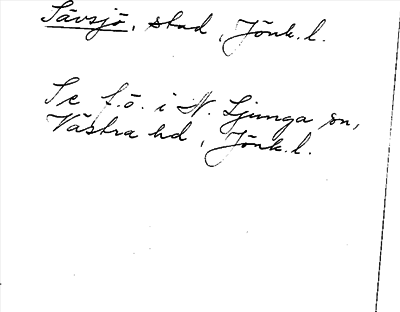 Sävsjö, stad, Jönk.l.
Se f.ö. i N. Ljunga sn,
Västra hd, Jönk.l.